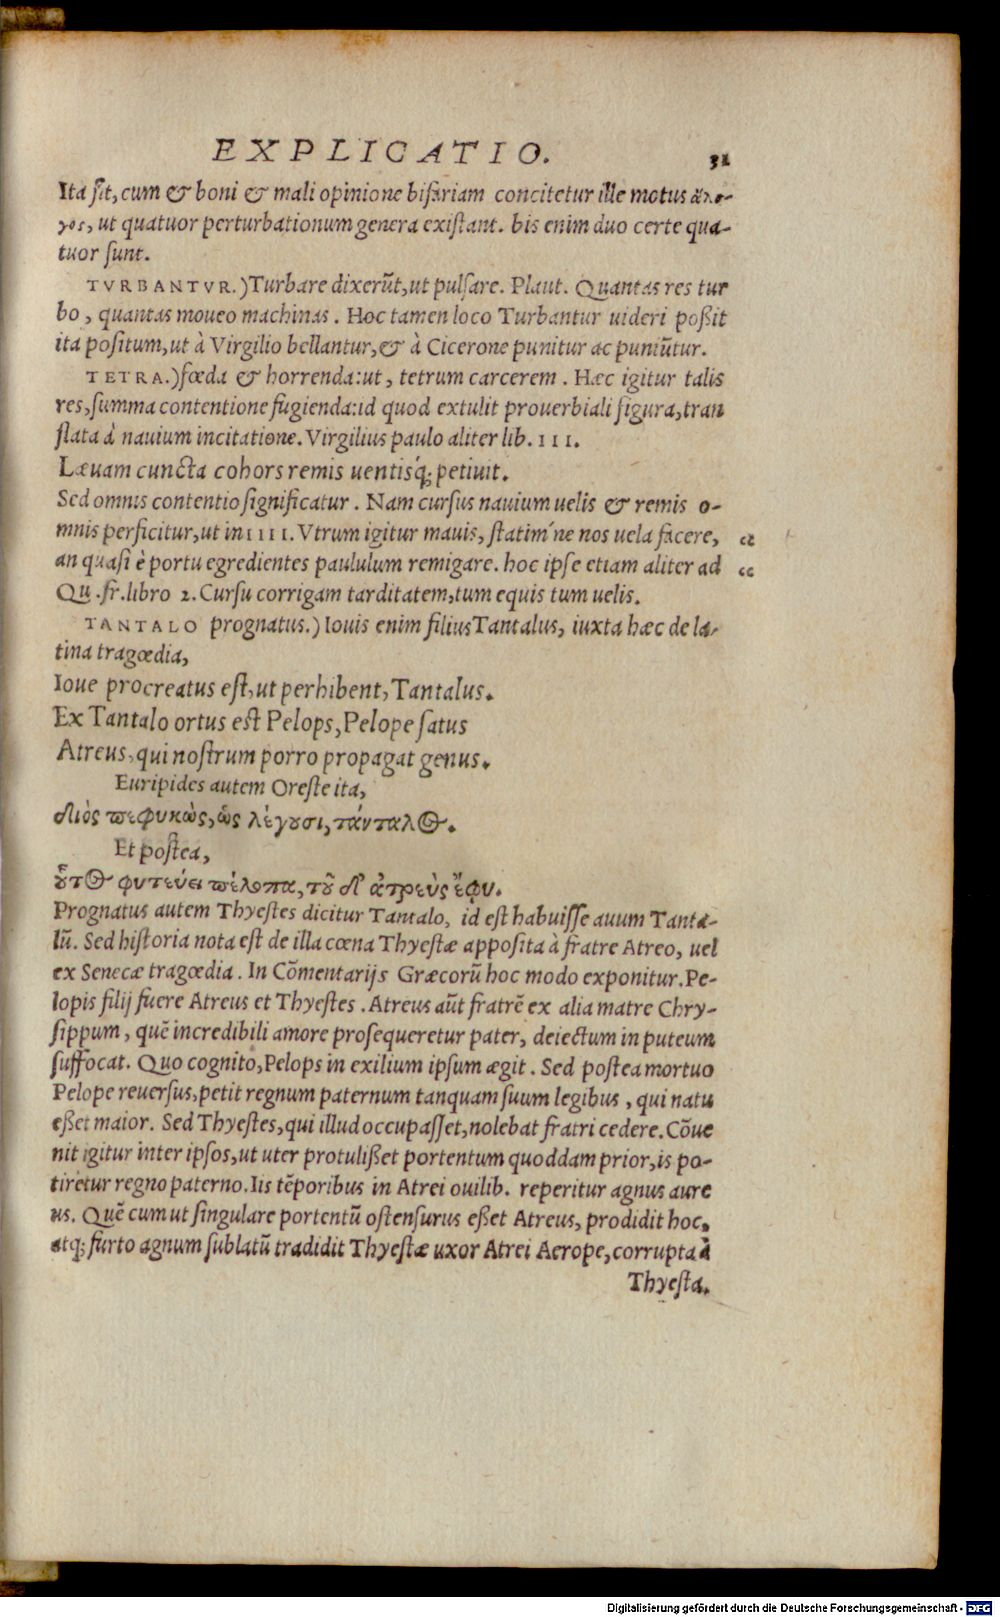 EXPLICATIO. 31
Ita fit, cum & boni & mali opinione bifariam concitetur ille motus ἄλο-
γος, ut quatuor perturbationum genera existant. bis enim duo certe qua-
tuor sunt.
TVRBANTVR.) Turbare dixerũt, ut pulsare. Plaut. Quantas res tur
bo, quantas moueo machinas. Hoc tamen loco Turbantur uideri poßit
ita positum, ut à Virgilio bellantur, & à Cicerone punitur ac puniũtur.
TETRA.) fœda & horrenda: ut, tetrum carcerem. Hæc igitur talis
res, summa contentione fugienda: id quod extulit prouerbiali figura, tran
slata à nauium incitatione. Virgilius paulo aliter lib. III.
Læuam cuncta cohors remis uentisq́; petiuit.
Sed omnis contentio significatur. Nam cursus nauium uelis & remis o-
mnis perficitur, ut in IIII. Vtrum igitur mauis, statim´ne nos uela facere, "
an quasi è portu egredientes paululum remigare. hoc ipse etiam aliter ad "
Qu. fr. libro 2. Cursu corrigam tarditatem, tum equis tum uelis.
TANTALO prognatus.) Iouis enim filius Tantalus, iuxta hæc de la-
tina tragœdia,
Ioue procreatus est, ut perhibent, Tantalus.
Ex Tantalo ortus est Pelops, Pelope satus
Atreus, qui nostrum porro propagat genus.
Euripides autem Oreste ita,
διὸς πεφυκὼς, ὡς λέγουσι, τάνταλος.
Et postea,
οὗτος φυτεύει πέλοπα, τοῦ δ' ἀτρεὺς ἔφυ.
Prognatus autem Thyestes dicitur Tantalo, id est habuisse auum Tanta-
lũ. Sed historia nota est de illa cœna Thyestæ apposita à fratre Atreo, uel
ex Senecæ tragœdia. In Cõmentarijs Græcorũ hoc modo exponitur. Pe-
lopis filij fuere Atreus et Thyestes. Atreus aũt fratrẽ ex alia matre Chry-
sippum, quẽ incredibili amore prosequeretur pater, deiectum in puteum
suffocat. Quo cognito, Pelops in exilium ipsum ægit. Sed postea mortuo
Pelope reuersus, petit regnum paternum tanquam suum legibus, qui natu
eßet maior. Sed Thyestes, qui illud occupasset, nolebat fratri cedere. Cõue
nit igitur inter ipsos, ut uter protulißet portentum quoddam prior, is po-
tiretur regno paterno. Iis tẽporibus in Atrei ouilib. reperitur agnus aure
us. Quẽ cum ut singulare portentũ ostensurus eßet Atreus, prodidit hoc,
atq; furto agnum sublatũ tradidit Thyestæ uxor Atrei Aerope, corrupta à
Thyesta.
Digitalisierung gefördert durch die Deutsche Forschungsgemeinschaft - DFG